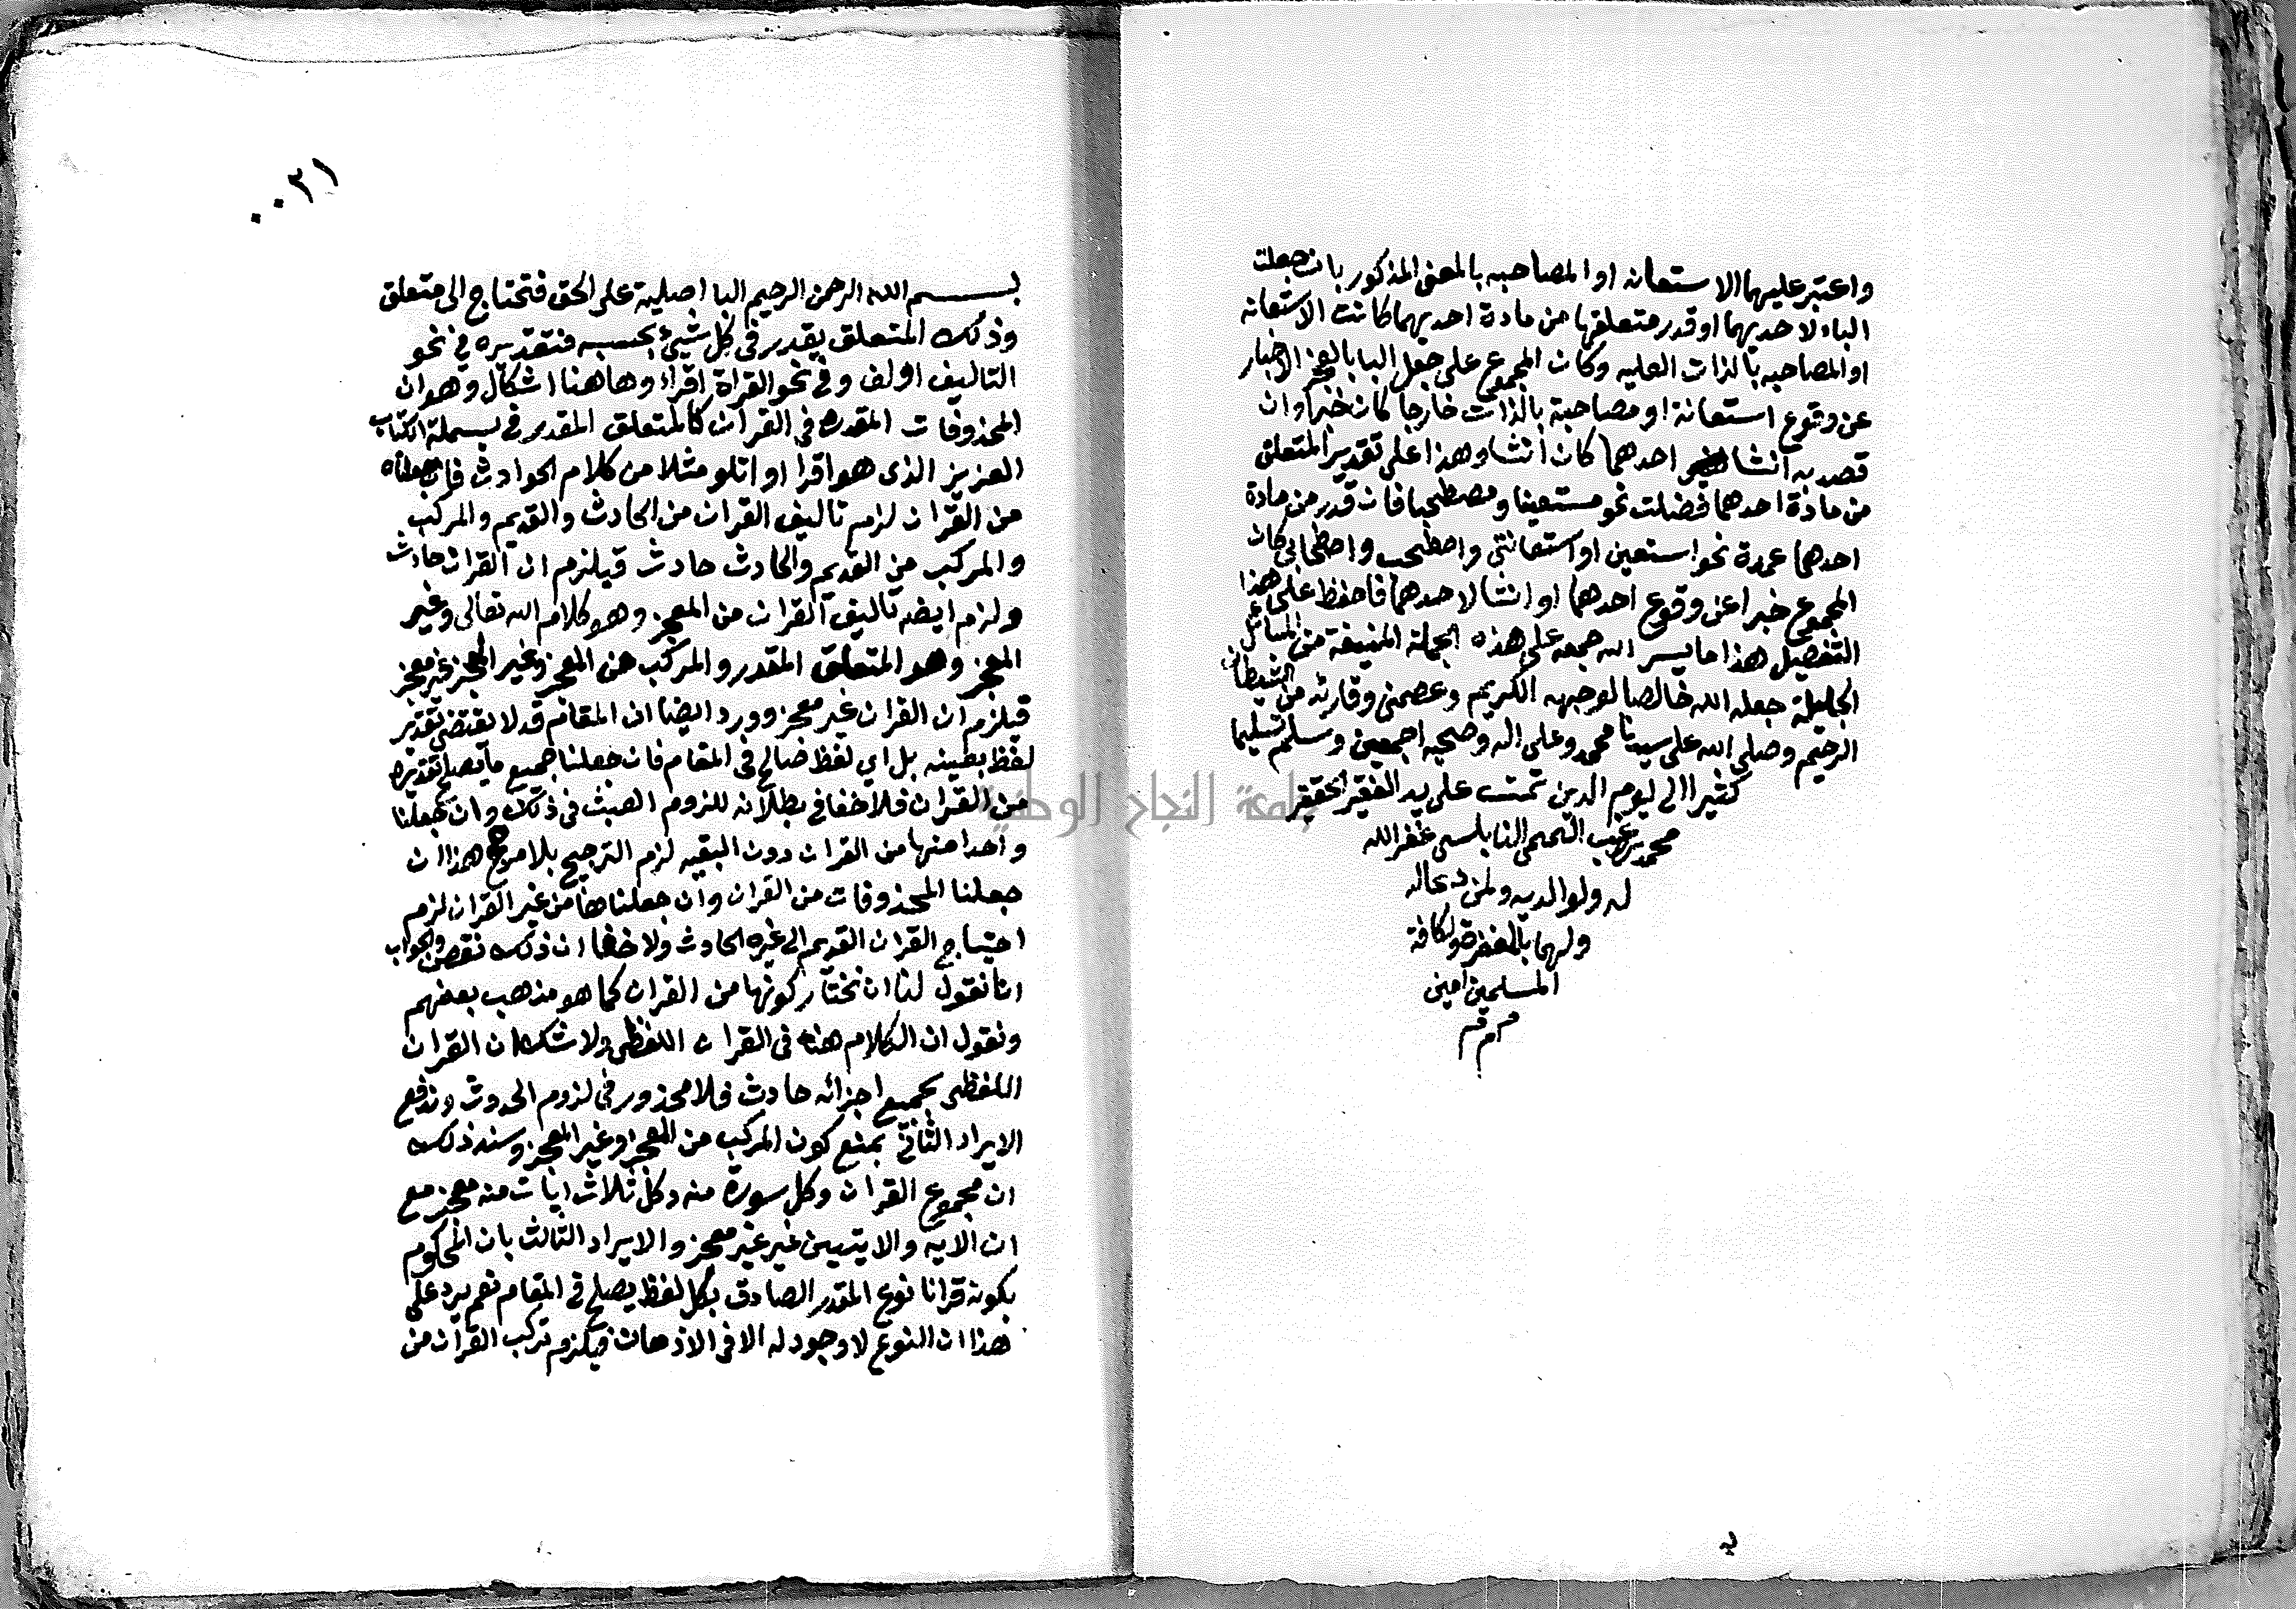 واعتبر عليهما الاستعانه او المصاحبه بالمعنى المذكور بان جعلت
الباء لاحديهما او قدر متعلقها من مادة احديهما كانت الاستعانه
او المصاحبه بالذات العليه وكان المجموع على جعل البا الاخبار
عن وقوع استعانة او مصاحبة بالذات خارجا كان خبرا وان
قصد به انشا احدهما كان انشا وهذا على تقدير المتعلق
من مادة احدهما فضلت نحو مستعينا ومصطحبا فان قدر من مادة
احدهما عمدة نحو استعين او استعانتي واصطحب واصطحابي كان
المجموع خبرا عن وقوع احدهما او انشا لاحدهما فاحفظ على هذا
التفصيل هذا ما يسر الله جمعه على هذه الجملة المنيفة من المسائل
الجليلة جعله الله خالصا لوجهه الكريم وعصمني وقارئه من الشيطان
الرحيم وصلى الله على سيدنا محمد وعلى اله وصحبه اجمعين وسلم تسليما
كثيرا الى ليوم الدين تمت على يد الفقير الحقير
محمد النابلسي غفر الله
له ولوالديه ولمن دعا له
ولهما بالمغفرة ولكافة
المسلمين امين
م م م
٠٠٢١
بسم الله الرحمن الرحيم البا اصلية على الحق فتحتاج الى متعلق
وذلك المتعلق يقدر في كل شيئ بحسبه فتقديره في نحو
التاليف اولف وفي نحو القراة اقراء وهاهنا اشكال وهو ان
المحذوفات المقدره في القران كالمتعلق المقدر في بسملة الكتاب
العزيز الذى هو اقرا او اتلو مثلا من كلام الحوادث فان جعلناه
من القران لزم تاليف القران من الحادث والقديم والمركب
والمركب من القديم والحادث حادث فيلزم ان القران حادث
ولزم ايضه تاليف القران من المعجز وهو كلام الله تعالى وغير
المعجز وهو المتعلق المقدر والمركب من المعجز وغير المعجز غير معجز
فيلزم ان القران غير معجز وورد ايضا ان المقام قد لا يقتضي تقدير
لفظ بعينه بل اي لفظ صالح في المقام فان جعلنا جميع ما يصلح تقديره
من القران فلا خفا في بطلانه للزوم العبث في ذلك وان جعلنا
واحدا منها من القران دون البقيه لزم الترجيح بلا مرجح هذا ان
جعلنا المحذوفات من القران وان جعلناها من غير القران لزم
احتياج القران القديم الى غيره الحادث ولا خفا ان ذلك نقص والجواب
انا نقول لنا ان نختار كونها من القران كما هو مذهب بعضهم
ونقول ان الكلام هنا في القران اللفظي ولا شك ان القران
اللفظي بجميع اجزائه حادث فلا محذور في لزوم الحدوث وندفع
الايراد الثاني بمنع كون المركب من المعجز وغير المعجز وسند ذلك
ان مجموع القران وكل سورة منه وكل ثلاث ايات منه معجز مع
ان الايه والايتيين غير غير معجز والايراد الثالث بان المحكوم
بكونه قرانا نوع المقدر الصادق بكل لفظ يصلح في المقام نعم يرد على
هذا ان النوع لا وجود له الا في الاذهان فيلزم تركب القران من
جامعة النجاح الوطنية